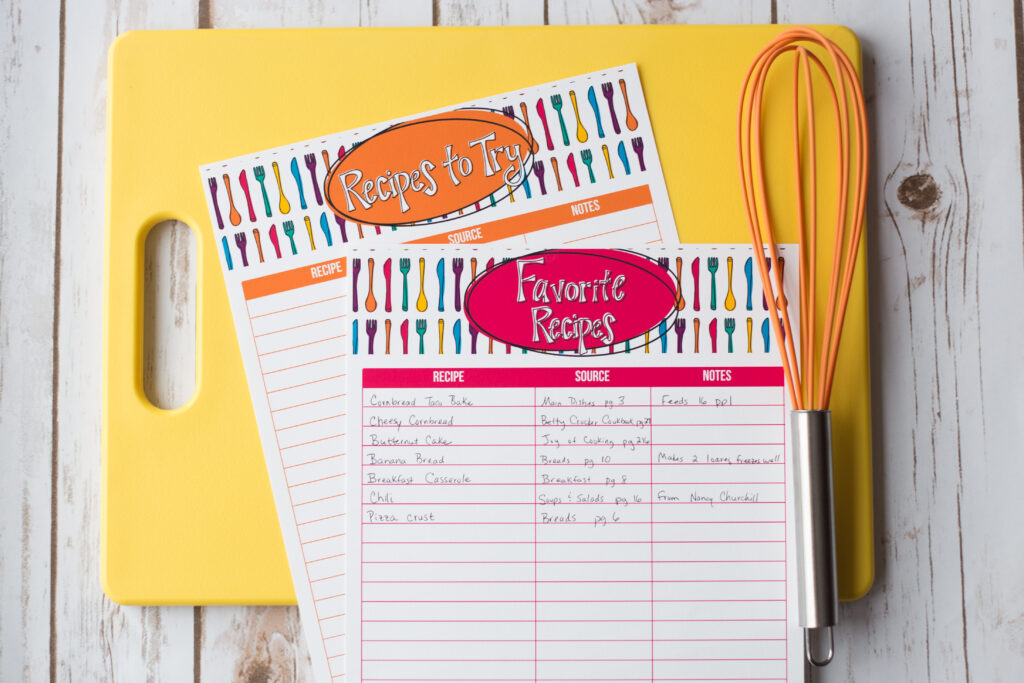 Recipes to Try
RECIPE SOURCE NOTES
Favorite
Recipes
RECIPE SOURCE NOTES
Cornbread Taco Bake Main Dishes pg 3 Feeds 16 ppl
Cheesy Cornbread Betty Crocker Cookbook pg
Butternut Cake Joy of Cooking pg 216
Banana Bread Breads pg 10 Makes 2 loaves, freezes well
Breakfast Casserole Breakfast pg 8
Chili Soups & Salads pg 16 From Nancy Churchill
Pizza crust Breads pg 6